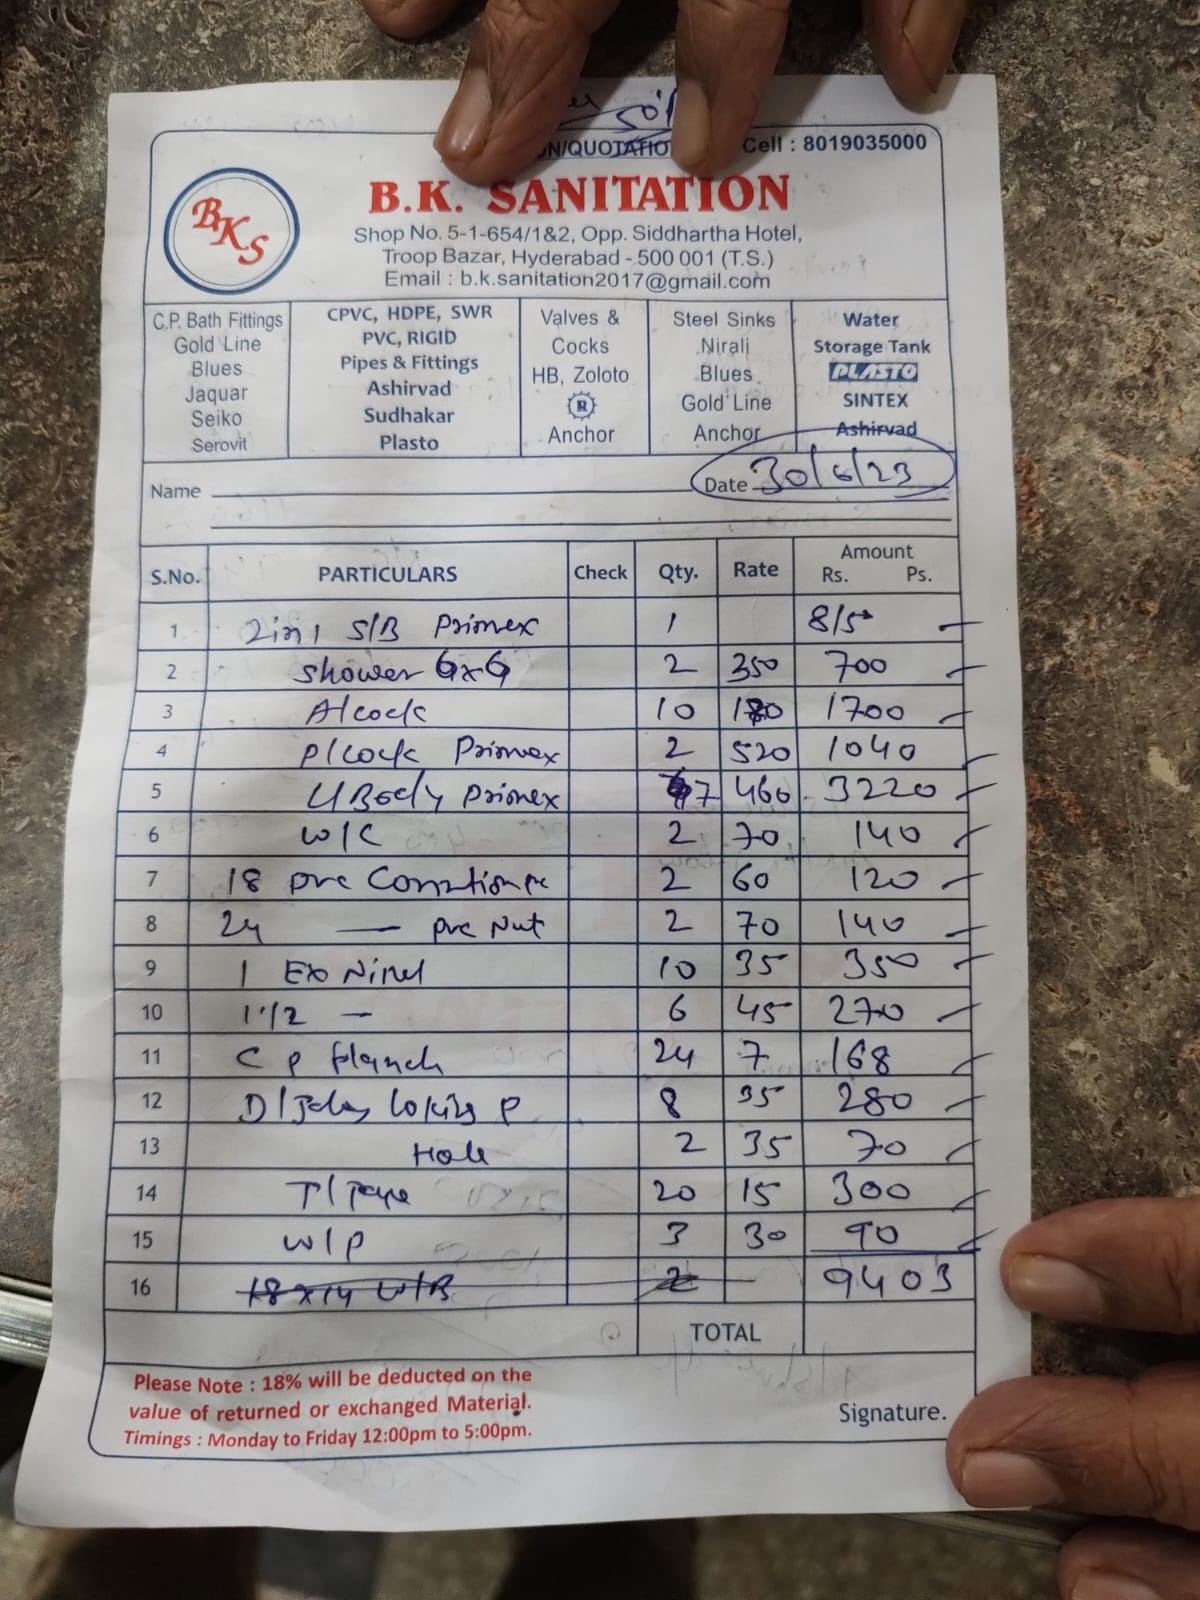 ON/QUOTATIO Cell : 8019035000
BKS
B.K. SANITATION
Shop No. 5-1-654/1&2, Opp. Siddhartha Hotel,
Troop Bazar, Hyderabad - 500 001 (T.S.)
Email : b.k.sanitation2017@gmail.com
C.P. Bath Fittings
Gold Line
Blues
Jaquar
Seiko
Serovit
CPVC, HDPE, SWR
PVC, RIGID
Pipes & Fittings
Ashirvad
Sudhakar
Plasto
Valves &
Cocks
HB, Zoloto
R
Anchor
Steel Sinks
Nirali
Blues
Gold Line
Anchor
Water
Storage Tank
PLASTO
SINTEX
Ashirvad
Name Date 30/6/23
S.No. PARTICULARS Check Qty. Rate Amount
Rs. Ps.
1 2in1 S/B Primex 1 815
2 Shower 6x6 2 350 700
3 A/cock 10 170 1700
4 P/cock Primex 2 520 1040
5 U Body Primex 7 460 3220
6 W/C 2 70 140
7 18 pvc 2 60 120
8 24 — pvc Nut 2 70 140
9 1 Ex 10 35 350
10 1 1/2 — 6 45 270
11 C P flanch 24 7 168
12 8 35 280
13 Hole 2 35 70
14 T/Tape 20 15 300
15 W/P 3 30 90
16 18x14 W/B 2 9403
TOTAL
Please Note : 18% will be deducted on the
value of returned or exchanged Material.
Timings : Monday to Friday 12:00pm to 5:00pm.
Signature.